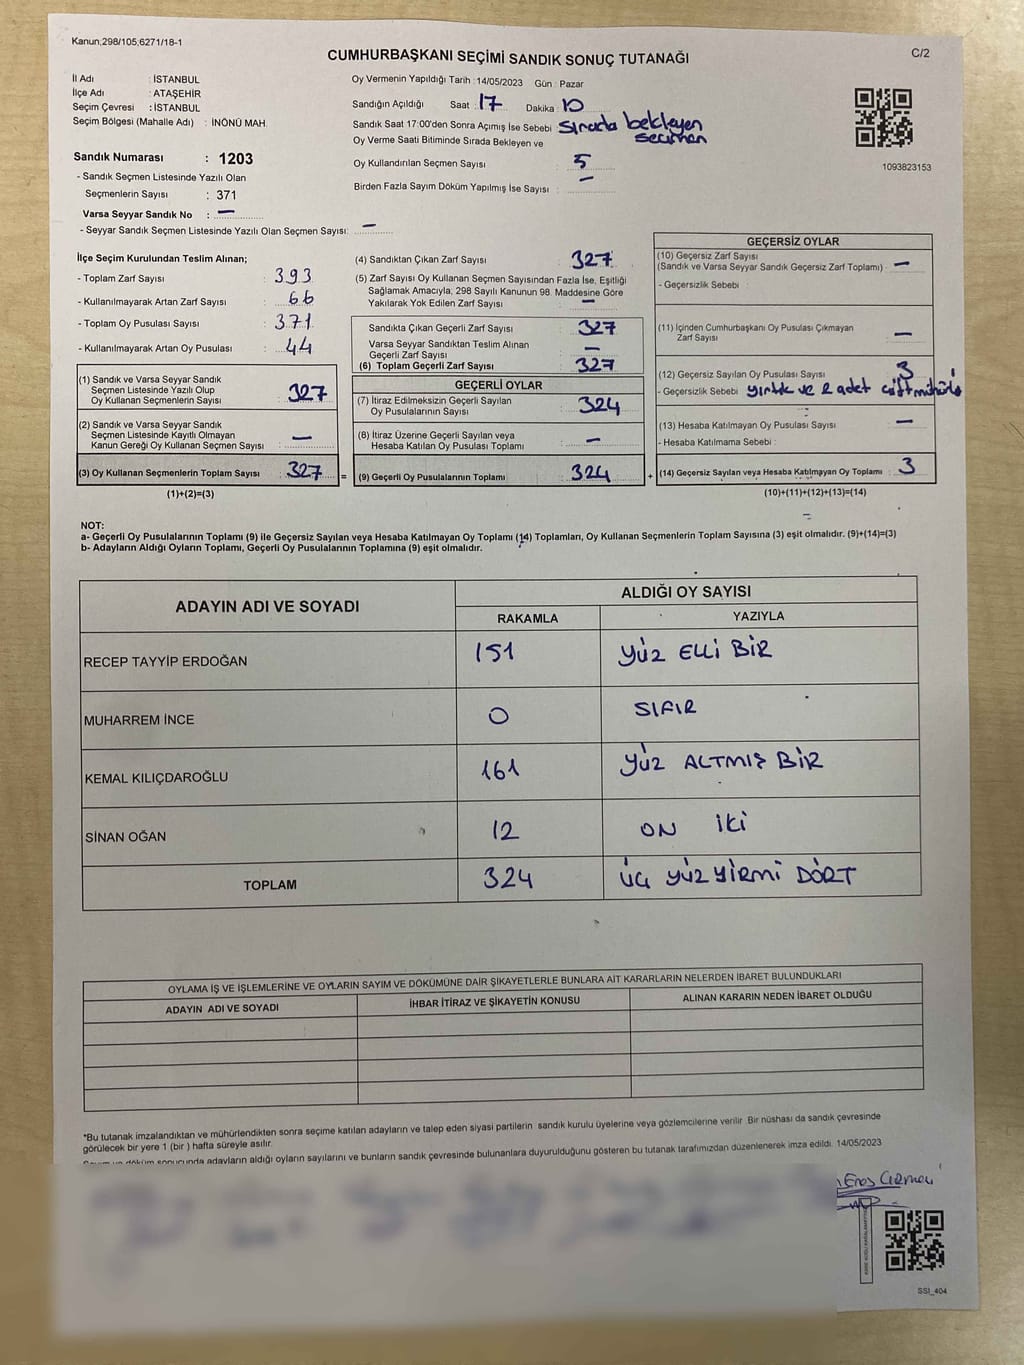 Kanun,298/105,6271/18-1
C/2
CUMHURBAŞKANI SEÇİMİ SANDIK SONUÇ TUTANAĞI
İl Adı : İSTANBUL
İlçe Adı : ATAŞEHİR
Seçim Çevresi : İSTANBUL
Seçim Bölgesi (Mahalle Adı) : İNÖNÜ MAH.
Sandık Numarası : 1203
- Sandık Seçmen Listesinde Yazılı Olan
Seçmenlerin Sayısı : 371
Varsa Seyyar Sandık No : —
- Seyyar Sandık Seçmen Listesinde Yazılı Olan Seçmen Sayısı: —
Oy Vermenin Yapıldığı Tarih : 14/05/2023 Gün : Pazar
Sandığın Açıldığı Saat : 17 Dakika : 10
Sandık Saati 17:00'den Sonra Açımış İse Sebebi : Sırada bekleyen
seçmen
Oy Verme Saati Bitiminde Sırada Bekleyen ve
Oy Kullandırılan Seçmen Sayısı : 5
Birden Fazla Sayım Döküm Yapılmış İse Sayısı : —
1093823153
İlçe Seçim Kurulundan Teslim Alınan;
- Toplam Zarf Sayısı : 393
- Kullanılmayarak Artan Zarf Sayısı : 66
- Toplam Oy Pusulası Sayısı : 371
- Kullanılmayarak Artan Oy Pusulası : 44
(1) Sandık ve Varsa Seyyar Sandık
Seçmen Listesinde Yazılı Olup
Oy Kullanan Seçmenlerin Sayısı : 327
(2) Sandık ve Varsa Seyyar Sandık
Seçmen Listesinde Kayıtlı Olmayan
Kanun Gereği Oy Kullanan Seçmen Sayısı : —
(3) Oy Kullanan Seçmenlerin Toplam Sayısı : 327 =
(1)+(2)=(3)
(4) Sandıktan Çıkan Zarf Sayısı : 327
(5) Zarf Sayısı Oy Kullanan Seçmen Sayısından Fazla İse, Eşitliği
Sağlamak Amacıyla, 298 Sayılı Kanunun 98. Maddesine Göre
Yakılarak Yok Edilen Zarf Sayısı : —
Sandıkta Çıkan Geçerli Zarf Sayısı : 327
Varsa Seyyar Sandıktan Teslim Alınan
Geçerli Zarf Sayısı : —
(6) Toplam Geçerli Zarf Sayısı : 327
GEÇERLİ OYLAR
(7) İtiraz Edilmeksizin Geçerli Sayılan
Oy Pusulalarının Sayısı : 324
(8) İtiraz Üzerine Geçerli Sayılan veya
Hesaba Katılan Oy Pusulası Toplamı : —
(9) Geçerli Oy Pusulalarının Toplamı : 324 +
GEÇERSİZ OYLAR
(10) Geçersiz Zarf Sayısı
(Sandık ve Varsa Seyyar Sandık Geçersiz Zarf Toplamı) : —
- Geçersizlik Sebebi :
(11) İçinden Cumhurbaşkanı Oy Pusulası Çıkmayan
Zarf Sayısı : —
(12) Geçersiz Sayılan Oy Pusulası Sayısı : 3
- Geçersizlik Sebebi : yırtık ve 2 adet çift mühürlü
(13) Hesaba Katılmayan Oy Pusulası Sayısı : —
- Hesaba Katılmama Sebebi :
(14) Geçersiz Sayılan veya Hesaba Katılmayan Oy Toplamı : 3
(10)+(11)+(12)+(13)=(14)
NOT:
a- Geçerli Oy Pusulalarının Toplamı (9) ile Geçersiz Sayılan veya Hesaba Katılmayan Oy Toplamı (14) Toplamları, Oy Kullanan Seçmenlerin Toplam Sayısına (3) eşit olmalıdır. (9)+(14)=(3)
b- Adayların Aldığı Oyların Toplamı, Geçerli Oy Pusulalarının Toplamına (9) eşit olmalıdır.
ADAYIN ADI VE SOYADI ALDIĞI OY SAYISI
RAKAMLA YAZIYLA
RECEP TAYYİP ERDOĞAN 151 YÜZ ELLİ BİR
MUHARREM İNCE 0 SIFIR
KEMAL KILIÇDAROĞLU 161 YÜZ ALTMIŞ BİR
SİNAN OĞAN 12 ON İKİ
TOPLAM 324 ÜÇ YÜZ YİRMİ DÖRT
OYLAMA İŞ VE İŞLEMLERİNE VE OYLARIN SAYIM VE DÖKÜMÜNE DAİR ŞİKAYETLERLE BUNLARA AİT KARARLARIN NELERDEN İBARET BULUNDUKLARI
ADAYIN ADI VE SOYADI İHBAR İTİRAZ VE ŞİKAYETİN KONUSU ALINAN KARARIN NEDEN İBARET OLDUĞU
*Bu tutanak imzalandıktan ve mühürlendikten sonra seçime katılan adayların ve talep eden siyasi partilerin sandık kurulu üyelerine veya gözlemcilerine verilir. Bir nüshası da sandık çevresinde
görülecek bir yere 1 (bir ) hafta süreyle asılır.
Sayım ve döküm sonucunda adayların aldığı oyların sayılarını ve bunların sandık çevresinde bulunanlara duyurulduğunu gösteren bu tutanak tarafımızdan düzenlenerek imza edildi. 14/05/2023
SSI_404